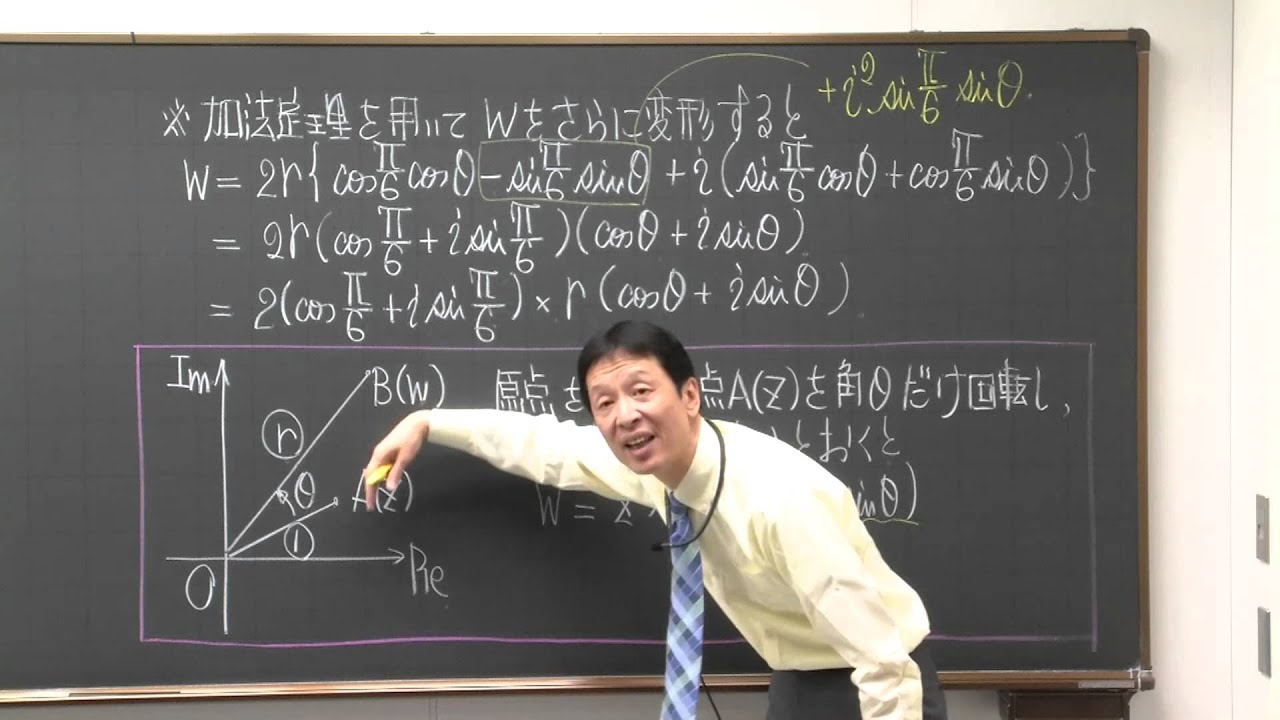 +i²sin π/6 sinθ
※加法定理を用いてWをさらに変形すると
W=2r{cos π/6 cosθ-sin π/6 sinθ+i(sin π/6 cosθ+cos π/6 sinθ)}
=2r(cos π/6+i sin π/6)(cosθ+i sinθ)
=2(cos π/6+i sin π/6)×r(cosθ+i sinθ)
Im
B(W)
r
θ
A(z)
1
O
Re
原点を
点A(z)を角θだけ回転し,
とおくと
W=z×
inθ)